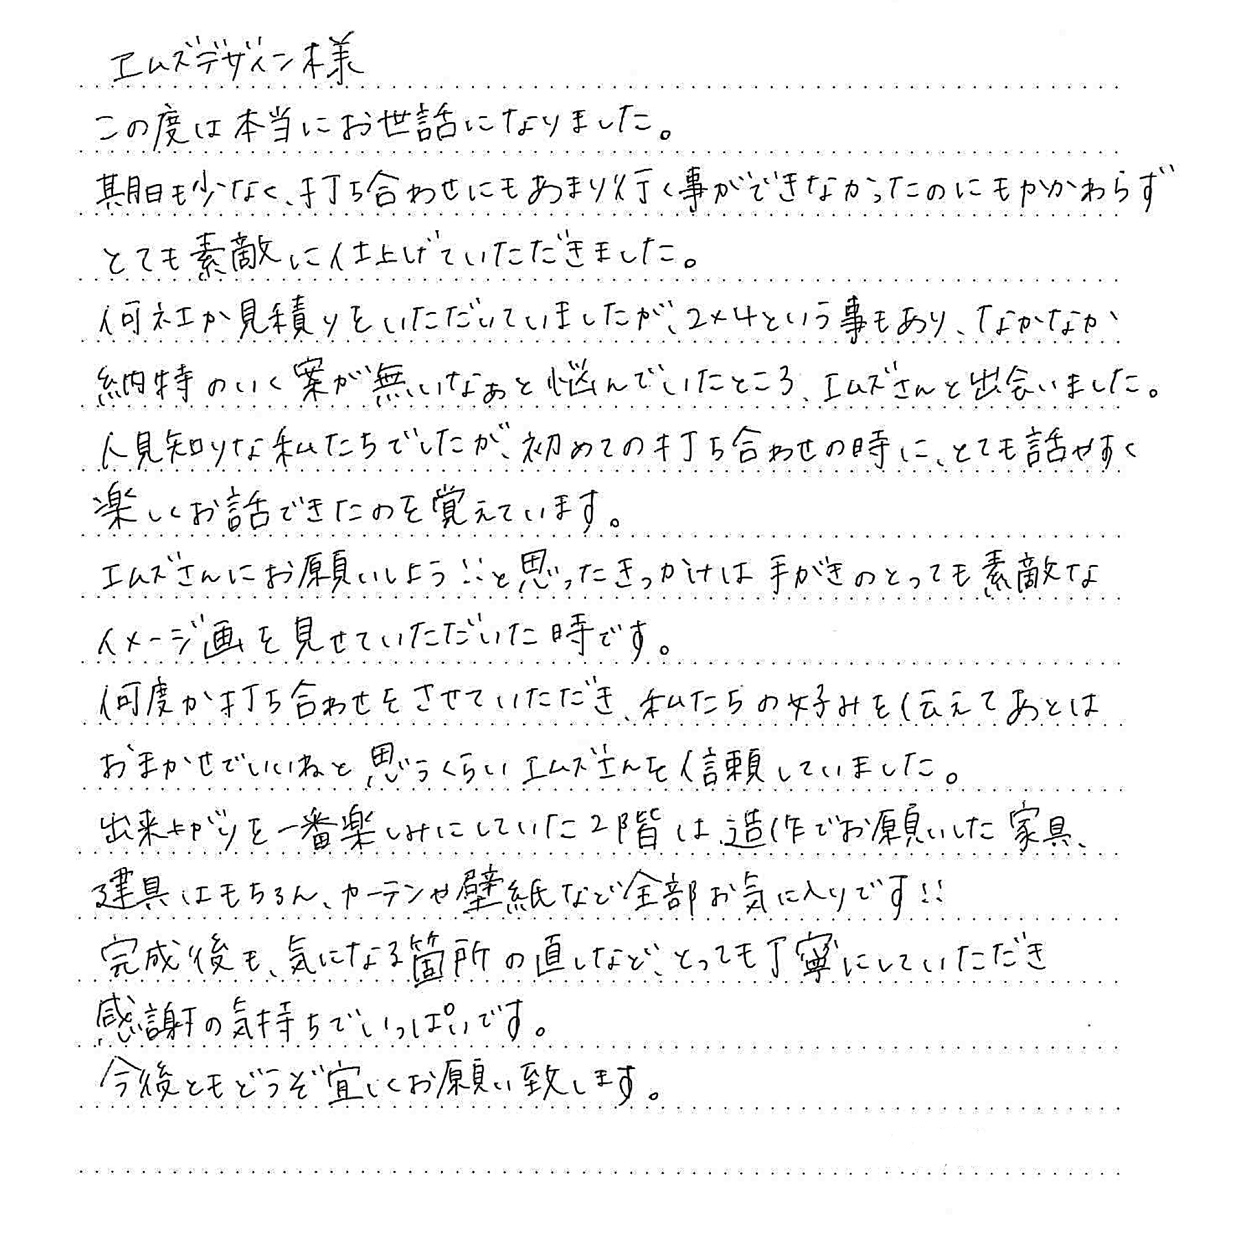 エムズデザイン様
この度は本当にお世話になりました。
期日も少なく、打ち合わせにもあまり行く事ができなかったのにもかかわらず
とても素敵に仕上げていただきました。
何社か見積りをいただいていましたが、2×4という事もあり、なかなか
納特のいく案が無いなぁと悩んでいたところ、エムズさんと出会いました。
人見知りな私たちでしたが、初めての打ち合わせの時に、とても話やすく
楽しくお話できたのを覚えています。
エムズさんにお願いしよう!!と思ったきっかけは手がきのとっても素敵な
イメージ画を見せていただいた時です。
何度か打ち合わせをさせていただき、私たちの好みを伝えてあとは
おまかせでいいねと思うくらいエムズさんを信頼していました。
出来上がりを一番楽しみにしていた2階は、造作でお願いした家具、
建具はもちろん、カーテンや壁紙など全部お気に入りです!!
完成後も、気になる箇所の直しなど、とっても丁寧にしていただき
感謝の気持ちでいっぱいです。
今後ともどうぞ宜しくお願い致します。